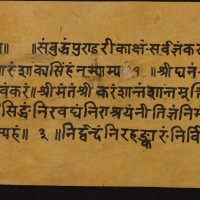 ॥ ॥संबुद्धंपुण्डरीकाक्षंसर्वज्ञंकरु
शाक्यसिंहंनमाम्यहं १ ॥श्रीघनं
करं॥श्रीमंतंश्रीकरंशान्तंशान्तमू
सिद्धंनिरवद्यंनिराश्रयंनीतिज्ञंनिर्म
म्यहं॥ ३ ॥निर्द्वंद्वंनिरहङ्कारंनिर्वि